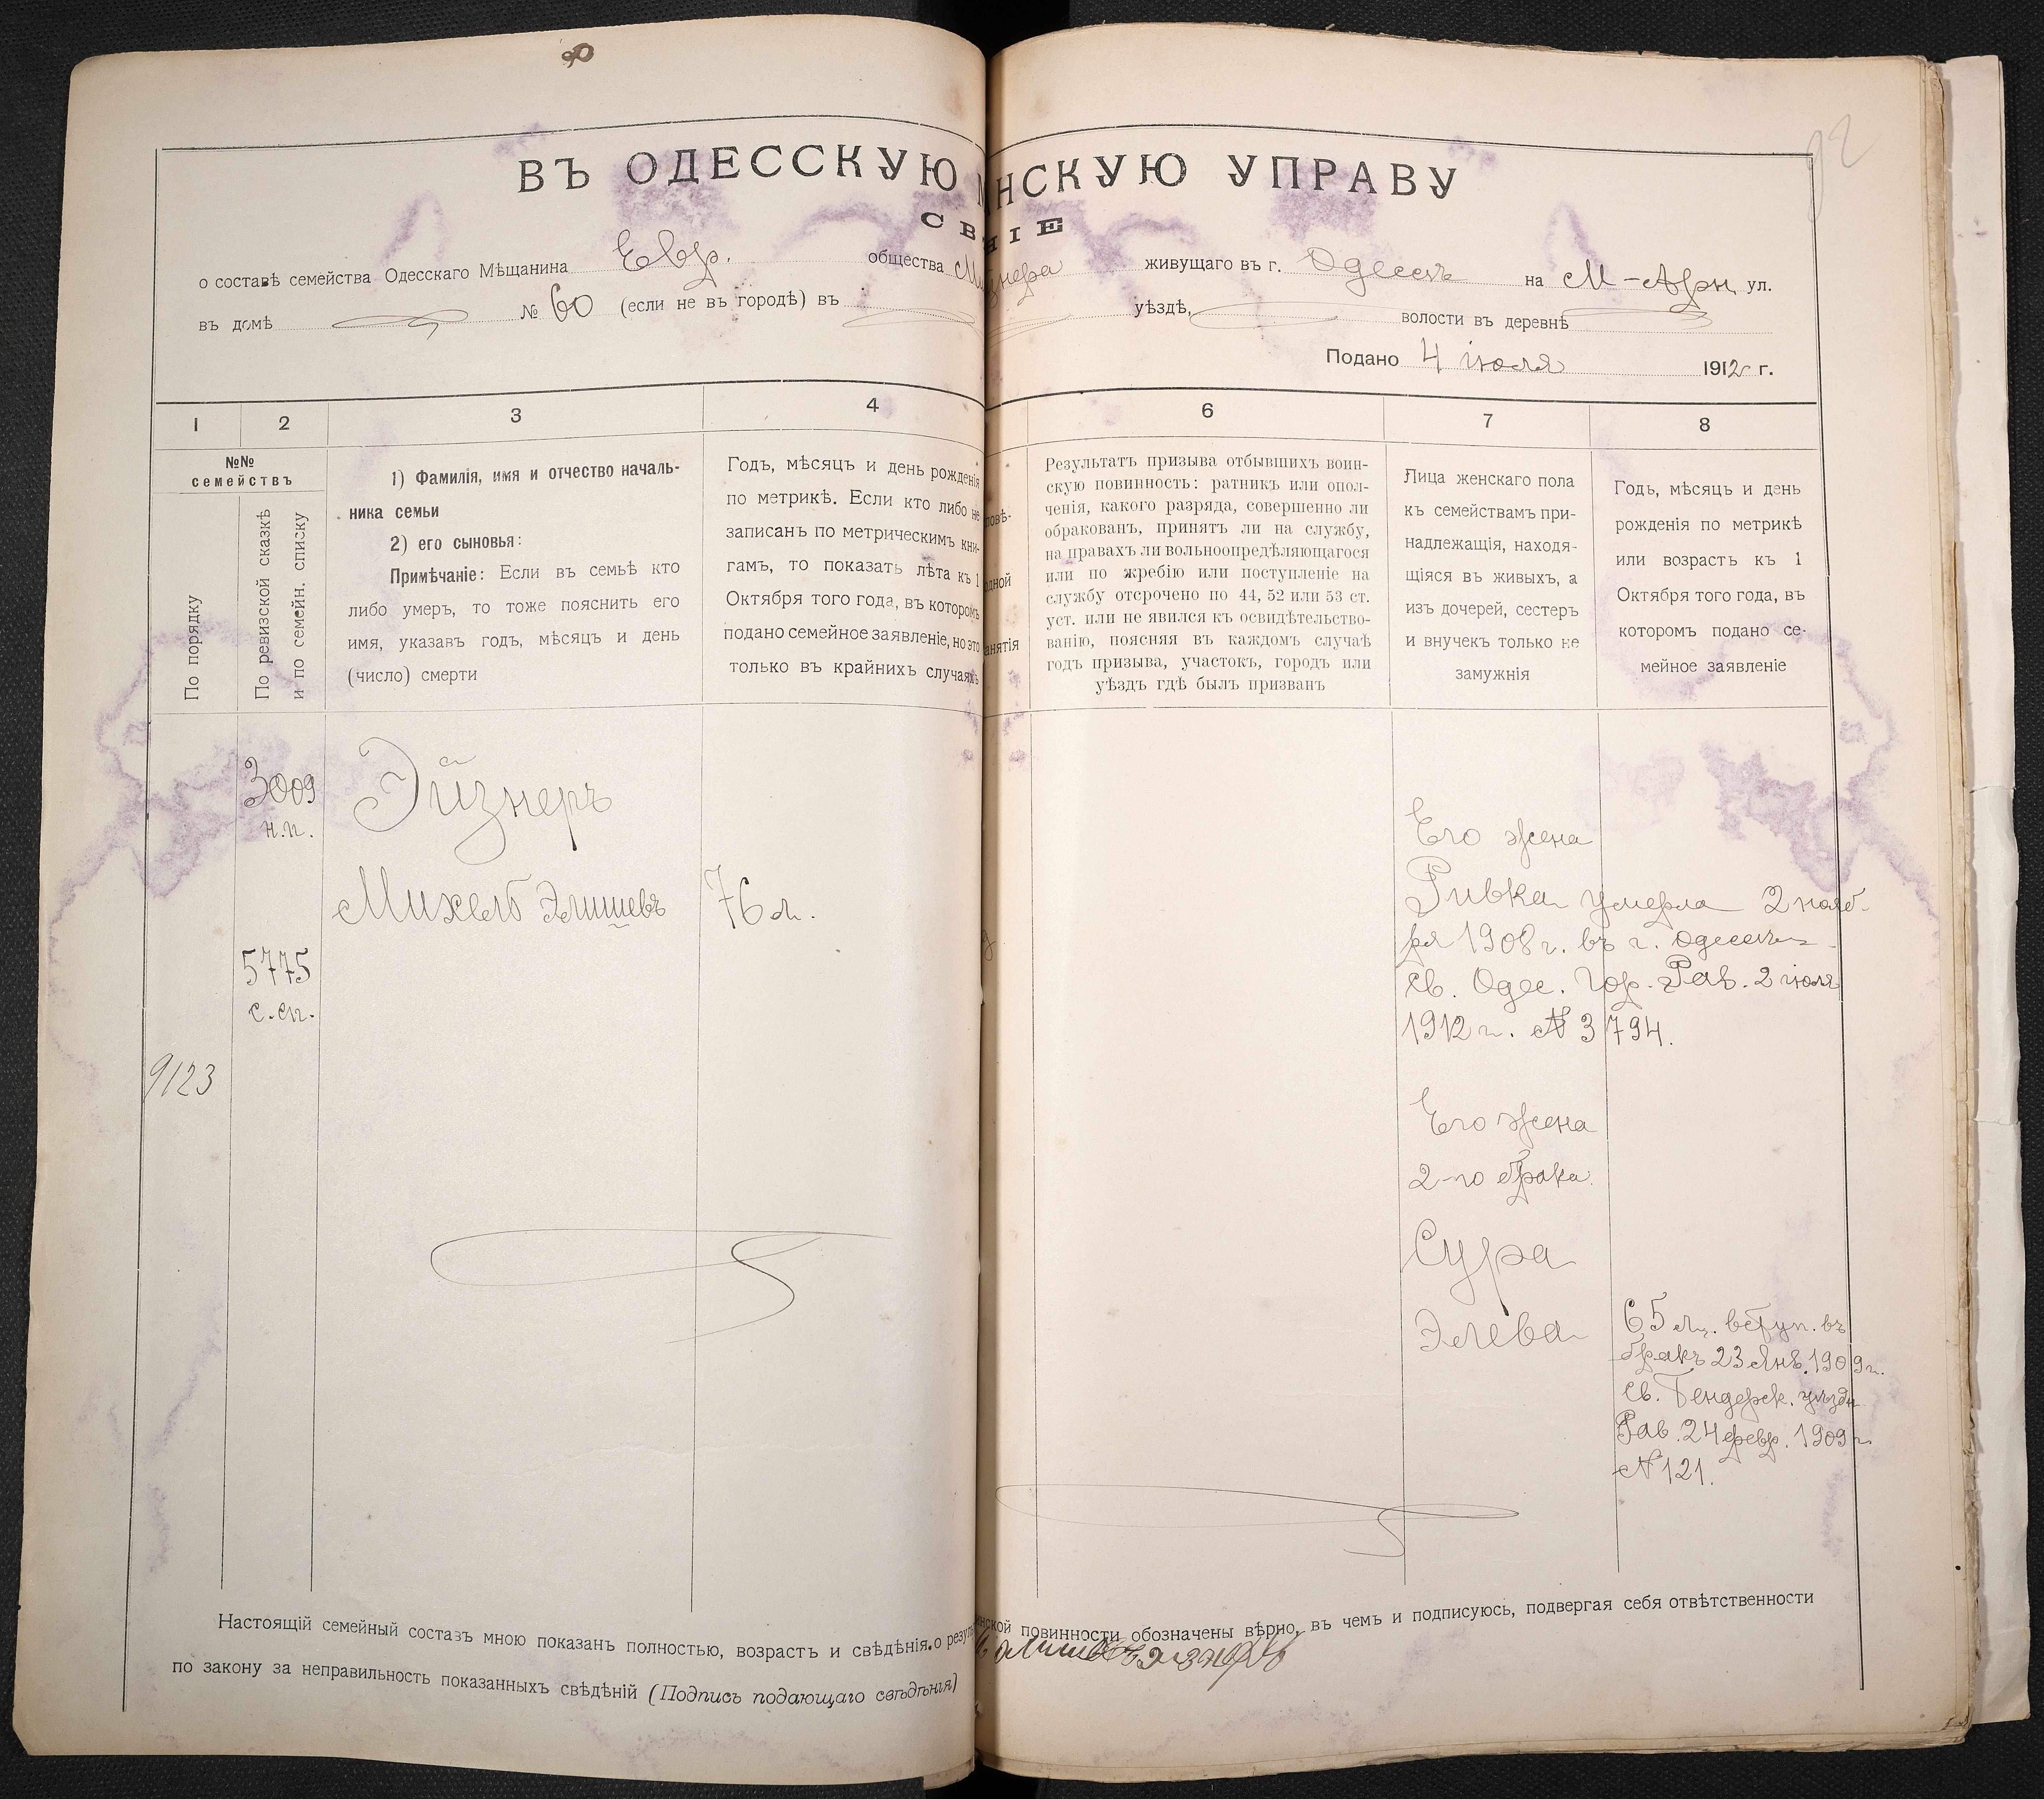 ВЪ ОДЕССКУЮ НСКУЮ УПРАВУ
СВ НІЕ
о составѣ семейства Одесскаго Мѣщанина Евр. общества живущаго въ г. Одессѣ на М-Арн. ул.
въ домѣ № 60 (если не въ городѣ) въ уѣздѣ, волости въ деревнѣ
Подано 4 іюля 1912 г.
1 2 3 4
№№
семействъ
По порядку
По ревизской сказкѣ
и по семейн. списку
1) Фамилія, имя и отчество началь-
ника семьи
2) его сыновья:
Примѣчаніе: Если въ семьѣ кто
либо умеръ, то тоже пояснить его
имя, указавъ годъ, мѣсяцъ и день
(число) смерти
Годъ, мѣсяцъ и день рожденія
по метрикѣ. Если кто либо не
записанъ по метрическимъ кни-
гамъ, то показать лѣта къ 1
Октября того года, въ которомъ
подано семейное заявленіе, но это
только въ крайнихъ случаяхъ
6 7 8
повѣ-
одной
анятія
Результатъ призыва отбывшихъ воин-
скую повинность: ратникъ или опол-
ченія, какого разряда, совершенно ли
обракованъ, принятъ ли на службу,
на правахъ ли вольноопредѣляющагося
или по жребію или поступленіе на
службу отсрочено по 44, 52 или 53 ст.
уст. или не явился къ освидѣтельство-
ванію, поясняя въ каждомъ случаѣ
годъ призыва, участокъ, городъ или
уѣздъ гдѣ былъ призванъ
Лица женскаго пола
къ семействамъ при-
надлежащія, находя-
щіяся въ живыхъ, а
изъ дочерей, сестеръ
и внучекъ только не
замужнія
Годъ, мѣсяцъ и день
рожденія по метрикѣ
или возрастъ къ 1
Октября того года, въ
котором подано се-
мейное заявленіе
3009
н.п.
5775
с.сп.
9123
Эйзнеръ
Михель Элишевъ
76 л.
Его жена
Ривка умерла 2 нояб-
ря 1908 г. въ г. Одессѣ
св. Одес. Гор. Рав. 2 іюля
1912 г. № 3794.
Его жена
2-го брака
Сура
Элева
65 л. вступ. въ
бракъ 23 Янв. 1909 г.
св. Бендерск. уѣздн
Рав. 24 февр. 1909 г.
№ 121.
Настоящій семейный составъ мною показанъ полностью, возрастъ и свѣдѣнія о резул инской повинности обозначены вѣрно, въ чемъ и подписуюсь, подвергая себя отвѣтственности
по закону за неправильность показанныхъ свѣдѣній (Подпись подающаго свѣдѣнія)